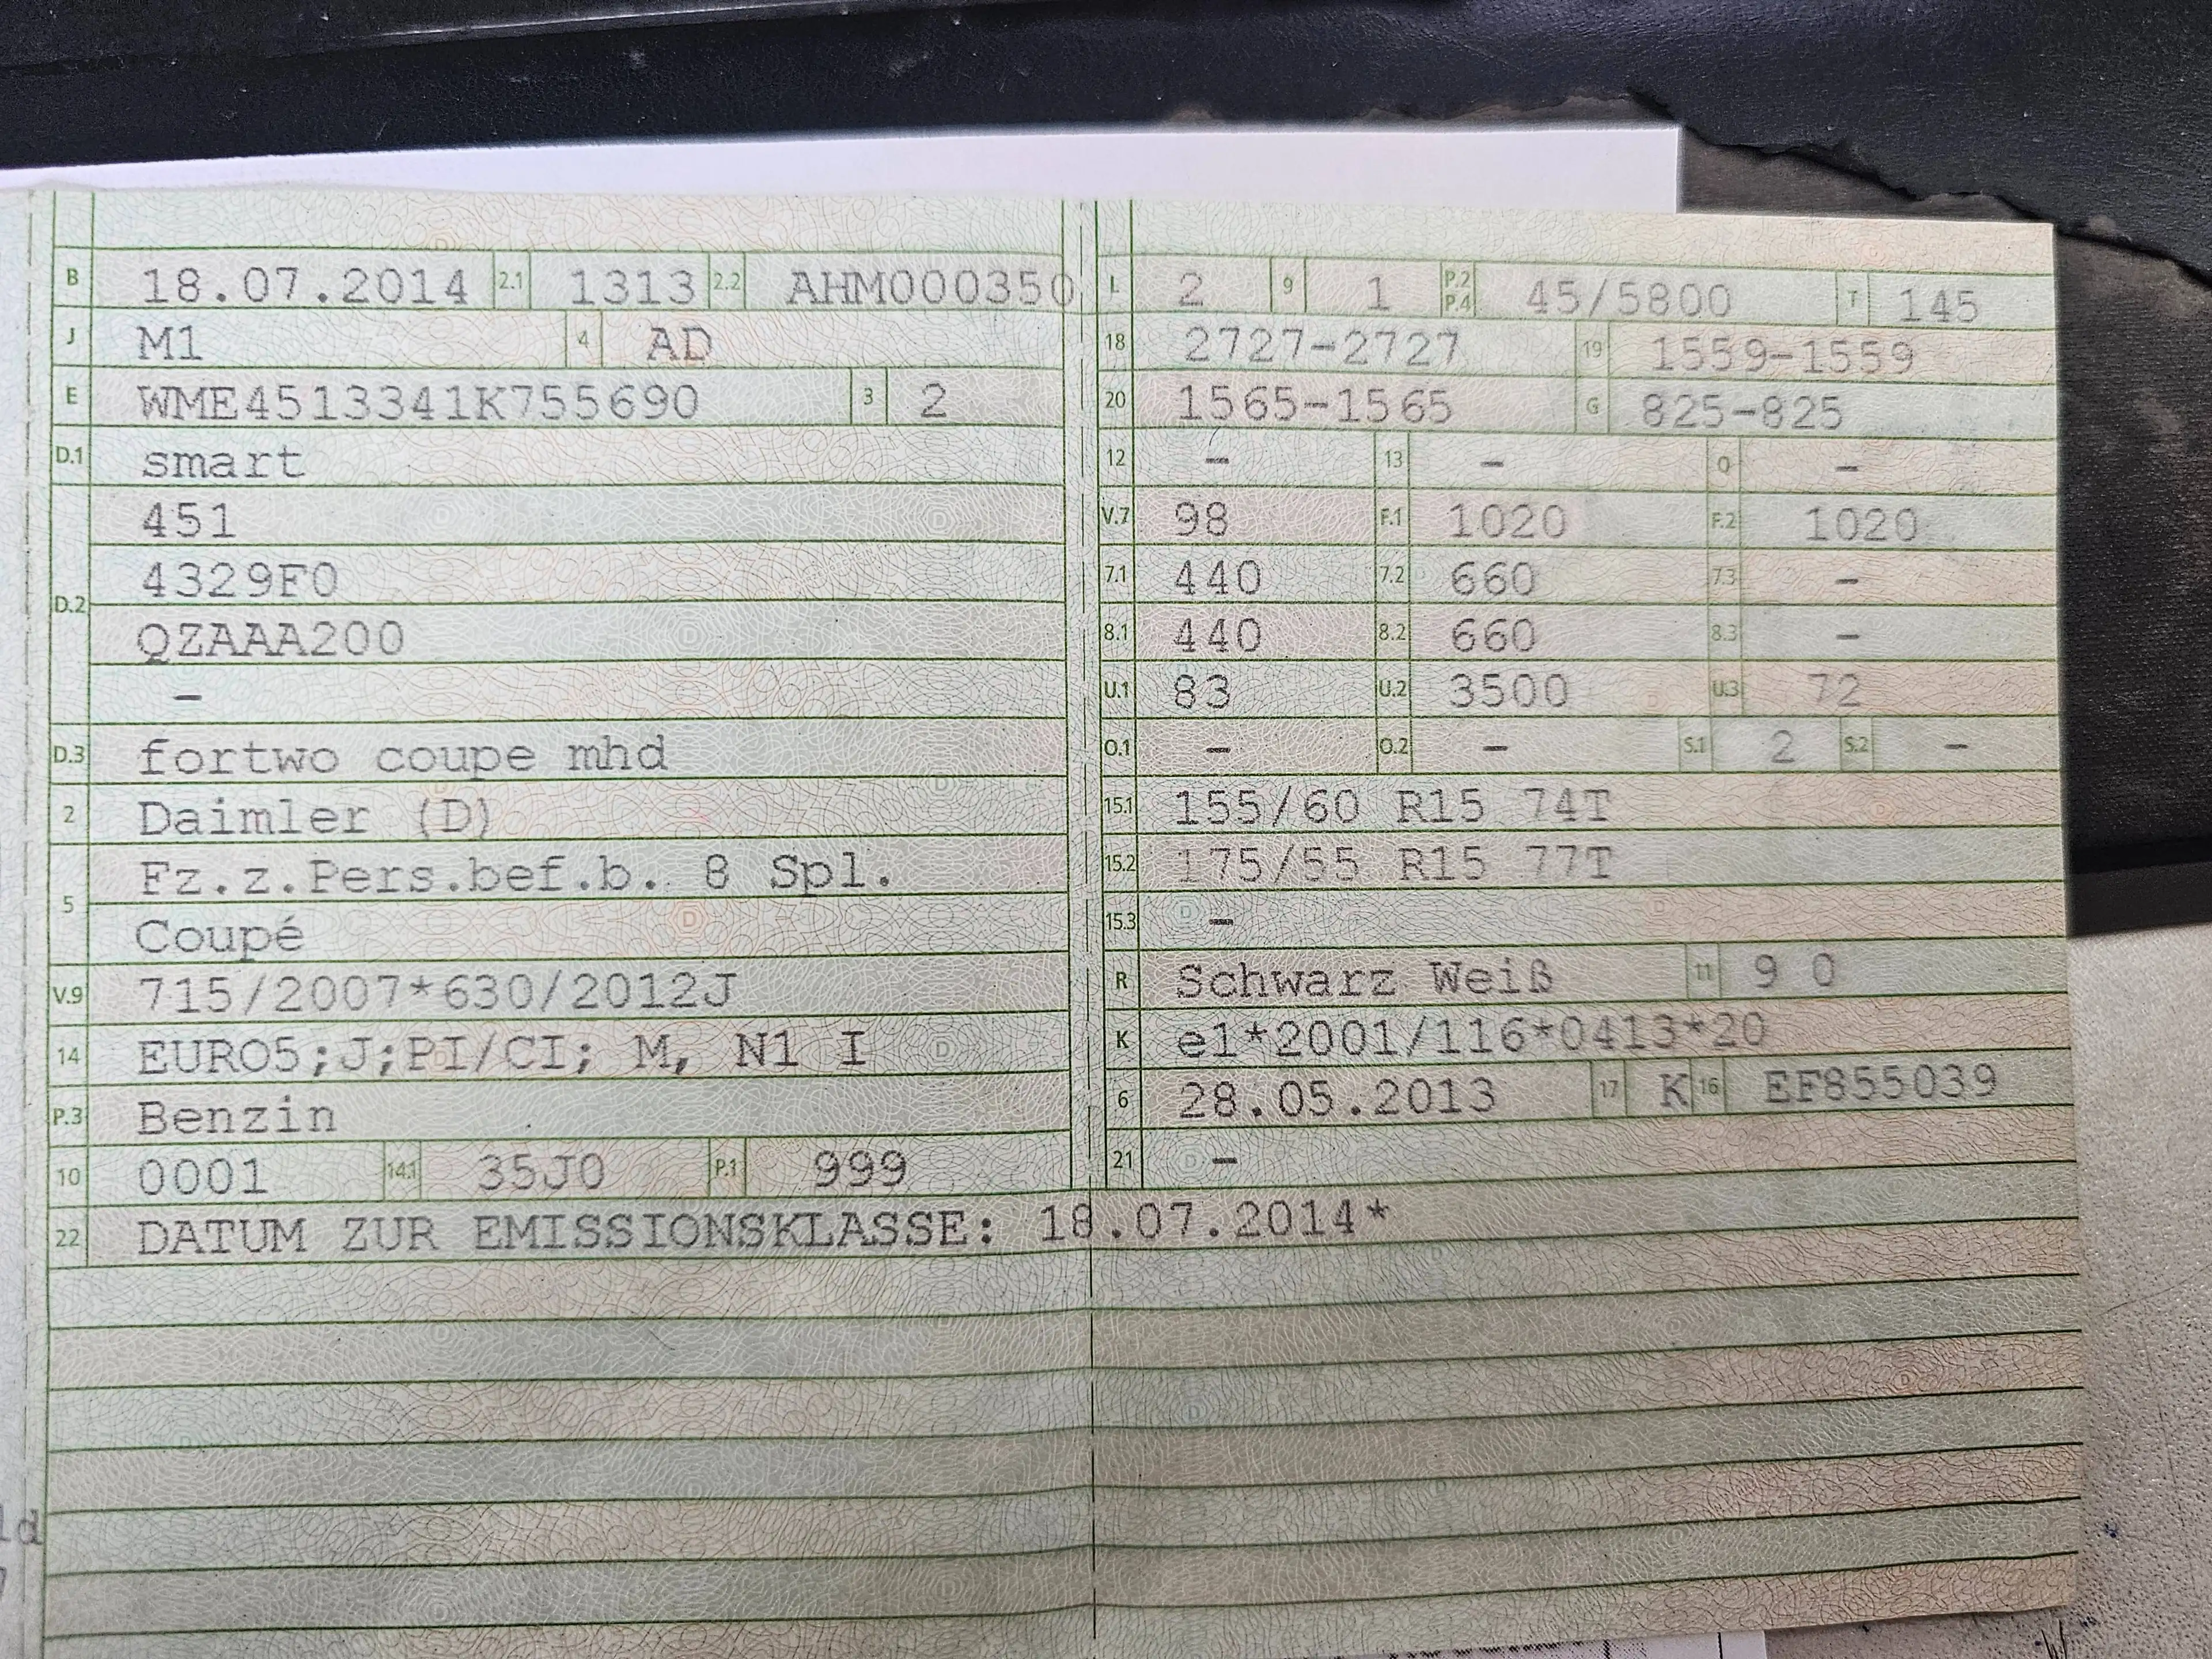 B 18.07.2014 2.1 1313 2.2 AHM000350
J M1 4 AD
E WME4513341K755690 3 2
D.1 smart
451
4329F0
D.2
QZAAA200
-
D.3 fortwo coupe mhd
2 Daimler (D)
Fz.z.Pers.bef.b. 8 Spl.
5
Coupé
V.9 715/2007*630/2012J
14 EURO5;J;PI/CI; M, N1 I
P.3 Benzin
10 0001 14.1 35J0 P.1 999
L 2 9 1 P.2 P.4 45/5800 T 145
18 2727-2727 19 1559-1559
20 1565-1565 G 825-825
12 - 13 - Q -
V.7 98 F.1 1020 F.2 1020
7.1 440 7.2 660 7.3 -
8.1 440 8.2 660 8.3 -
U.1 83 U.2 3500 U.3 72
O.1 - O.2 - S.1 2 S.2 -
15.1 155/60 R15 74T
15.2 175/55 R15 77T
15.3 -
R Schwarz Weiß 11 9 0
K e1*2001/116*0413*20
6 28.05.2013 17 K 16 EF855039
21 -
22 DATUM ZUR EMISSIONSKLASSE: 18.07.2014*
ld